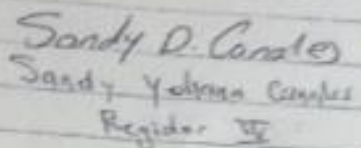 Sandy D. Canales
Sandy Yohana Canales
Regidor IV